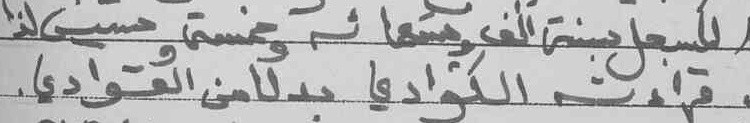 للسجل بسنة ألف وتسعمائة وخمسة حسب لنا
قراءة الكوادي بدلا من القوادي.